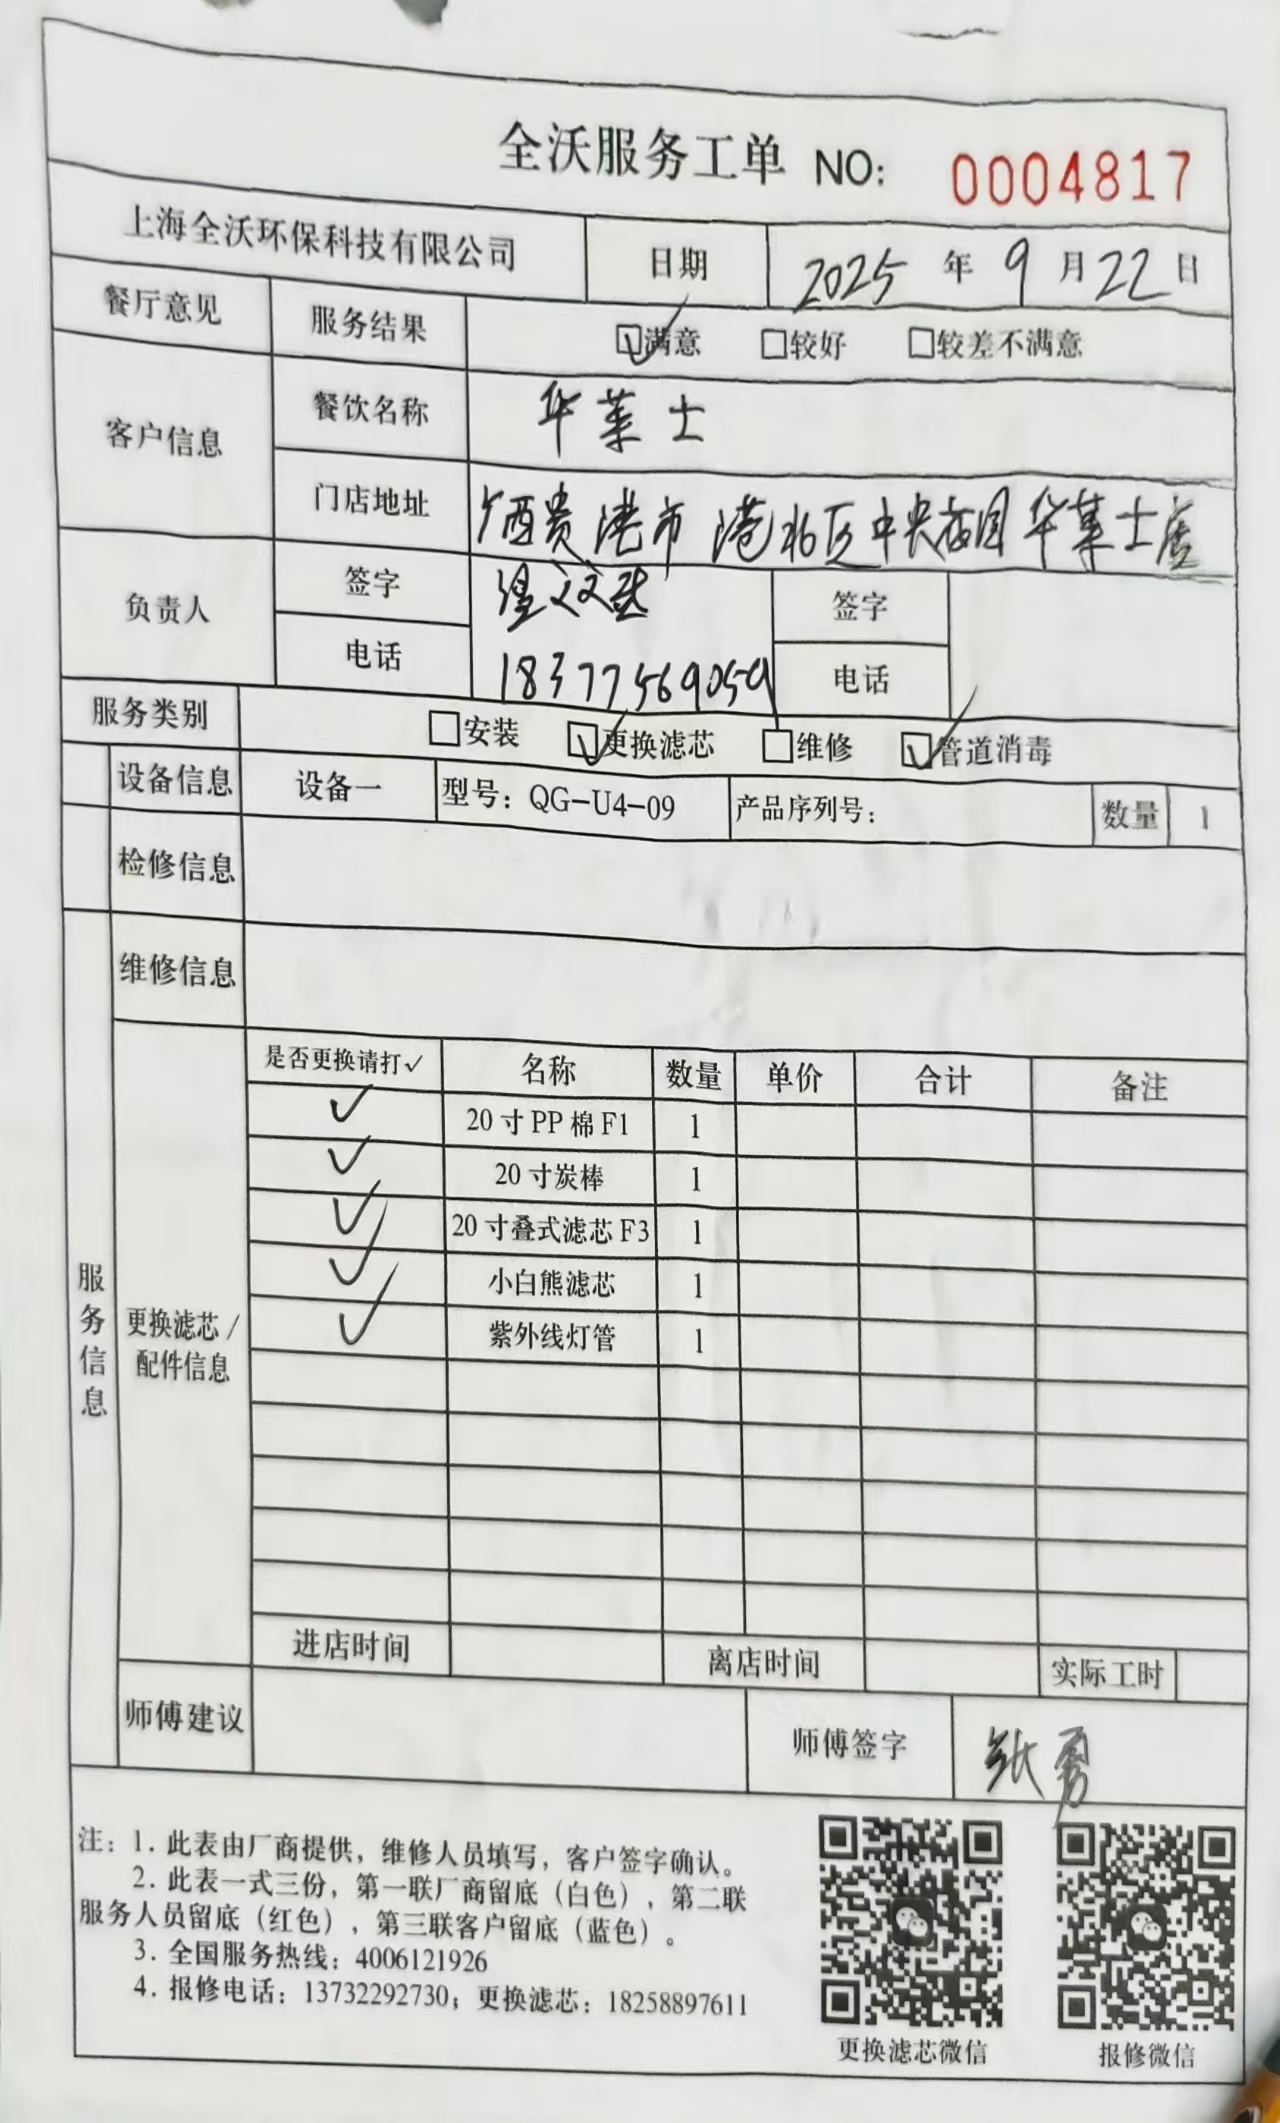 全沃服务工单 NO: 0004817
上海全沃环保科技有限公司 日期 2025 年 9 月 22 日
餐厅意见 服务结果 ☑满意 □较好 □较差不满意
客户信息 餐饮名称 华莱士
门店地址 广西贵港市港北区中央花园华莱士店
负责人 签字 签字
电话 18377569059 电话
服务类别 □安装 ☑更换滤芯 □维修 ☑管道消毒
设备信息 设备一 型号：QG-U4-09 产品序列号： 数量 1
检修信息
服务信息
维修信息
更换滤芯/
配件信息
是否更换请打✓ 名称 数量 单价 合计 备注
✓ 20寸PP棉F1 1
✓ 20寸炭棒 1
✓ 20寸叠式滤芯F3 1
✓ 小白熊滤芯 1
✓ 紫外线灯管 1
进店时间 离店时间 实际工时
师傅建议 师傅签字 张勇
注：1. 此表由厂商提供，维修人员填写，客户签字确认。
2. 此表一式三份，第一联厂商留底（白色），第二联
服务人员留底（红色），第三联客户留底（蓝色）。
3. 全国服务热线：4006121926
4. 报修电话：13732292730；更换滤芯：18258897611
更换滤芯微信 报修微信